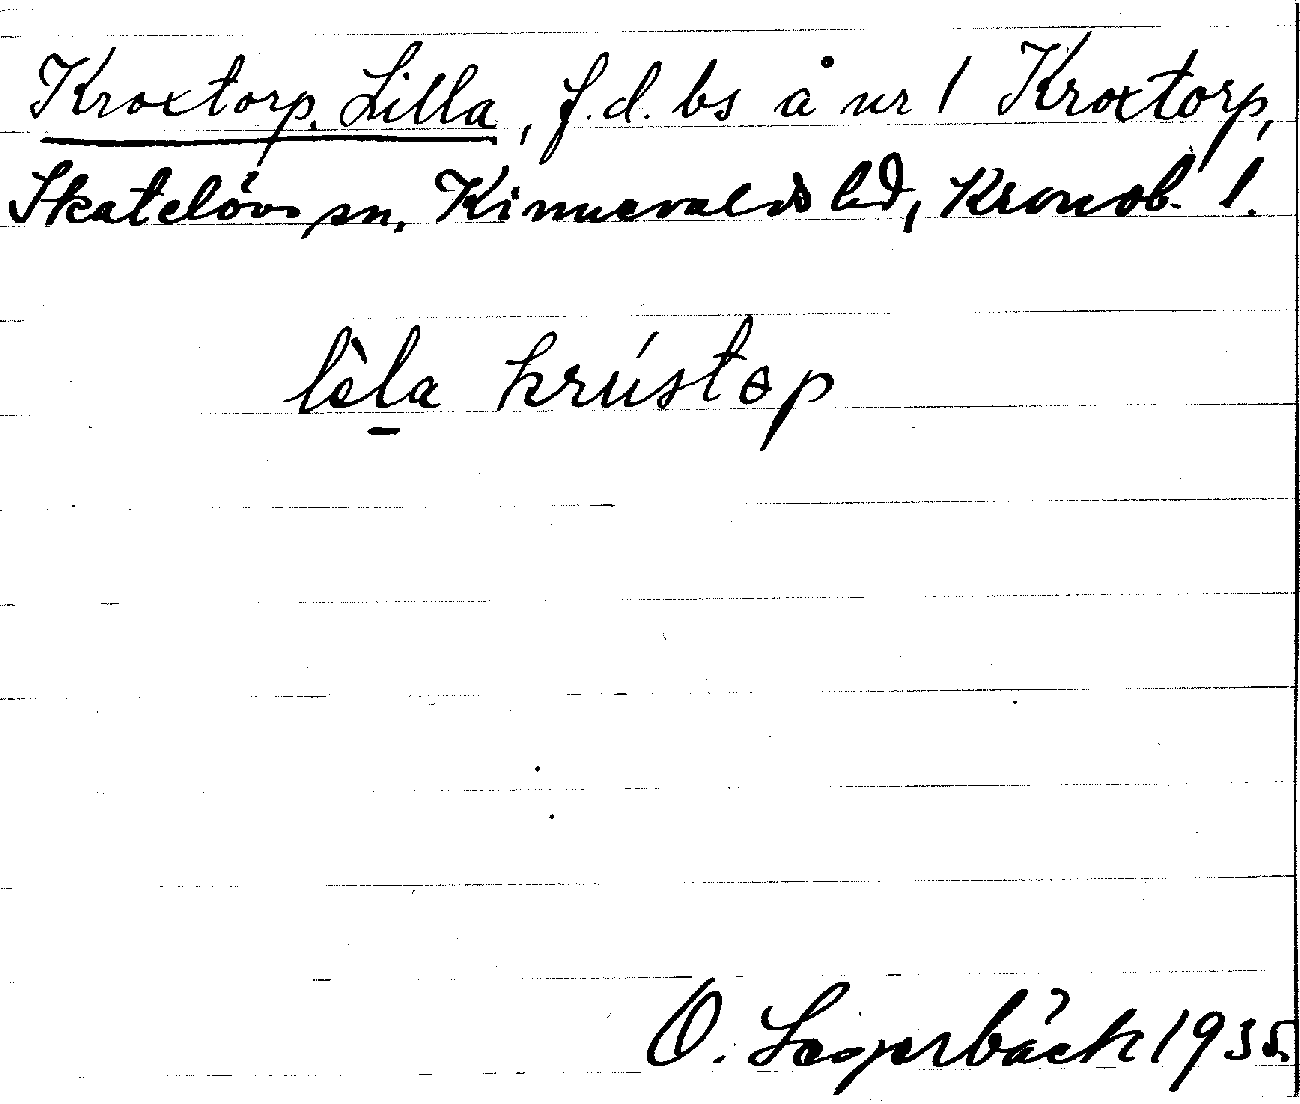 Kroxtorp, Lilla, f.d. bs å nr 1 Kroxtorp,
Skatelövs sn, Kinnevalds hd, Kronob. l.
lèla krústəp
O. Lagerbäck 1935.